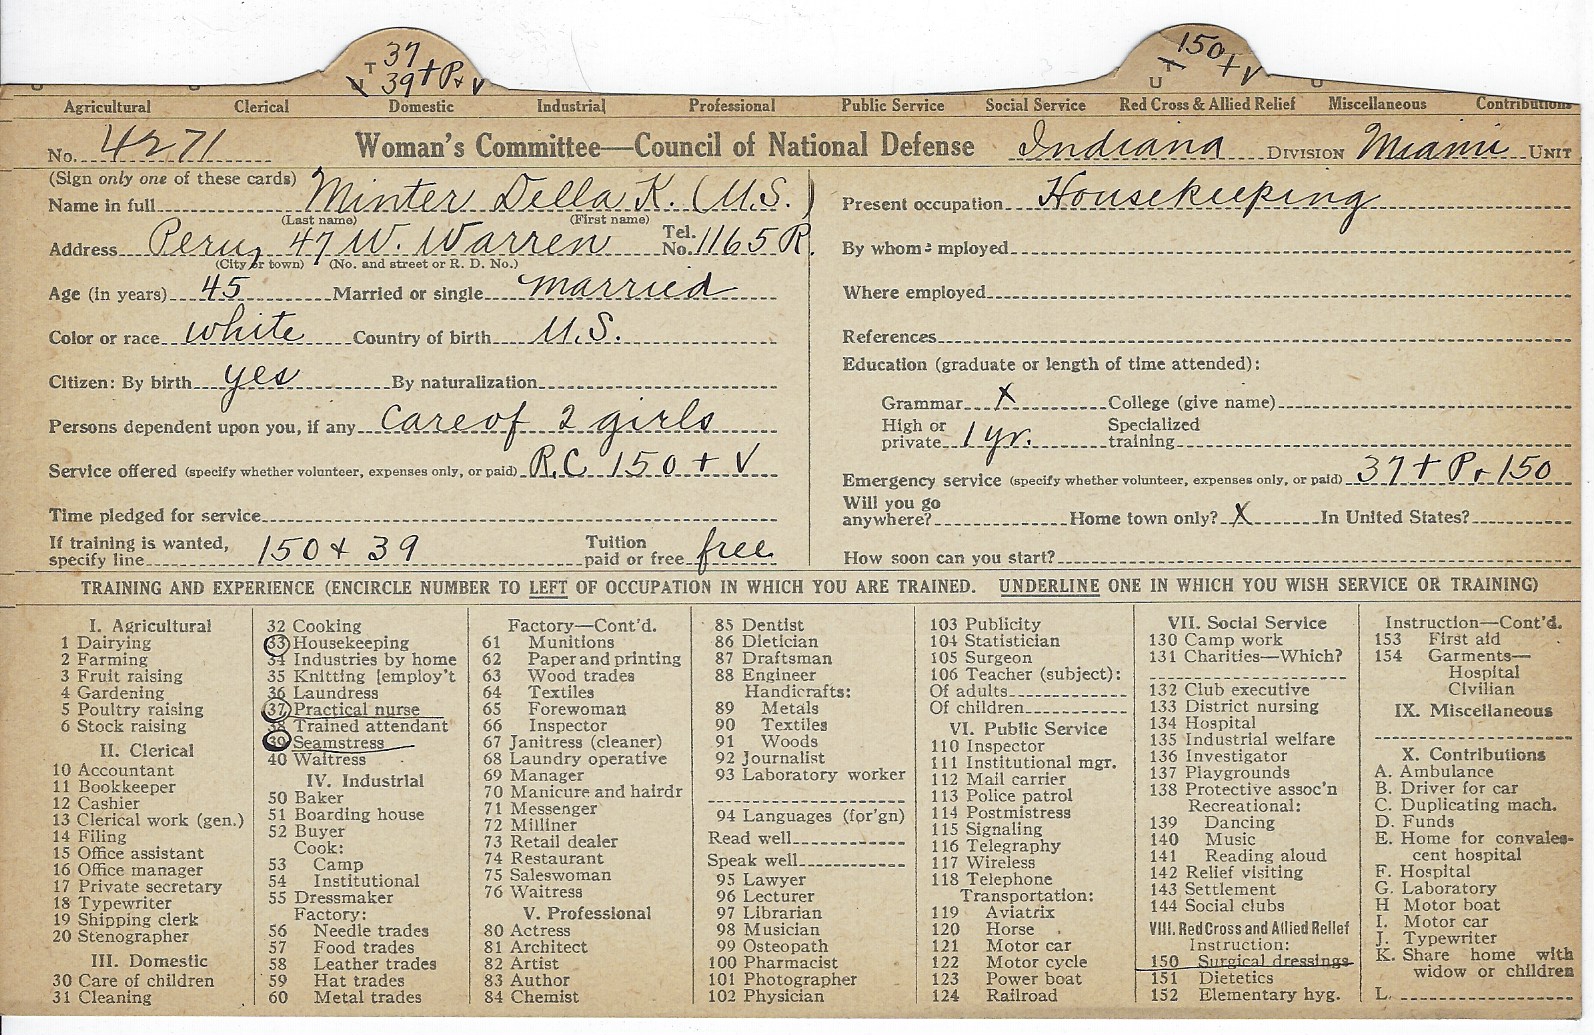 37
T
V 39 + P + V
150
T + V
U
Agricultural Clerical Domestic Industrial Professional Public Service Social Service Red Cross & Allied Relief Miscellaneous Contributions
No. 4271 Woman's Committee—Council of National Defense Indiana DIVISION Miami UNIT
(Sign only one of these cards)
Name in full Minter Della K. (U.S.)
(Last name) (First name)
Address Peru, 47 W. Warren Tel. No. 1165 R.
(City or town) (No. and street or R. D. No.)
Age (in years) 45 Married or single married
Color or race white Country of birth U.S.
Citizen: By birth yes By naturalization
Persons dependent upon you, if any care of 2 girls
Service offered (specify whether volunteer, expenses only, or paid) R.C. 150 + V
Time pledged for service
If training is wanted,
specify line 150 + 39 Tuition
paid or free free
Present occupation Housekeeping
By whom employed
Where employed
References
Education (graduate or length of time attended):
Grammar X College (give name)
High or
private 1 yr. Specialized
training
Emergency service (specify whether volunteer, expenses only, or paid) 37 + P + 150
Will you go
anywhere? Home town only? X In United States?
How soon can you start?
TRAINING AND EXPERIENCE (ENCIRCLE NUMBER TO LEFT OF OCCUPATION IN WHICH YOU ARE TRAINED. UNDERLINE ONE IN WHICH YOU WISH SERVICE OR TRAINING)
I. Agricultural
1 Dairying
2 Farming
3 Fruit raising
4 Gardening
5 Poultry raising
6 Stock raising
II. Clerical
10 Accountant
11 Bookkeeper
12 Cashier
13 Clerical work (gen.)
14 Filing
15 Office assistant
16 Office manager
17 Private secretary
18 Typewriter
19 Shipping clerk
20 Stenographer
III. Domestic
30 Care of children
31 Cleaning
32 Cooking
33 Housekeeping
34 Industries by home
35 Knitting [employ't
36 Laundress
37 Practical nurse
38 Trained attendant
39 Seamstress
40 Waitress
IV. Industrial
50 Baker
51 Boarding house
52 Buyer
Cook:
53 Camp
54 Institutional
55 Dressmaker
Factory:
56 Needle trades
57 Food trades
58 Leather trades
59 Hat trades
60 Metal trades
Factory—Cont'd.
61 Munitions
62 Paper and printing
63 Wood trades
64 Textiles
65 Forewoman
66 Inspector
67 Janitress (cleaner)
68 Laundry operative
69 Manager
70 Manicure and hairdr
71 Messenger
72 Milliner
73 Retail dealer
74 Restaurant
75 Saleswoman
76 Waitress
V. Professional
80 Actress
81 Architect
82 Artist
83 Author
84 Chemist
85 Dentist
86 Dietician
87 Draftsman
88 Engineer
Handicrafts:
89 Metals
90 Textiles
91 Woods
92 Journalist
93 Laboratory worker
94 Languages (for'gn)
Read well
Speak well
95 Lawyer
96 Lecturer
97 Librarian
98 Musician
99 Osteopath
100 Pharmacist
101 Photographer
102 Physician
103 Publicity
104 Statistician
105 Surgeon
106 Teacher (subject):
Of adults
Of children
VI. Public Service
110 Inspector
111 Institutional mgr.
112 Mail carrier
113 Police patrol
114 Postmistress
115 Signaling
116 Telegraphy
117 Wireless
118 Telephone
Transportation:
119 Aviatrix
120 Horse
121 Motor car
122 Motor cycle
123 Power boat
124 Railroad
VII. Social Service
130 Camp work
131 Charities—Which?
132 Club executive
133 District nursing
134 Hospital
135 Industrial welfare
136 Investigator
137 Playgrounds
138 Protective assoc'n
Recreational:
139 Dancing
140 Music
141 Reading aloud
142 Relief visiting
143 Settlement
144 Social clubs
VIII. Red Cross and Allied Relief
Instruction:
150 Surgical dressings
151 Dietetics
152 Elementary hyg.
Instruction—Cont'd.
153 First aid
154 Garments—
Hospital
Civilian
IX. Miscellaneous
X. Contributions
A. Ambulance
B. Driver for car
C. Duplicating mach.
D. Funds
E. Home for convales-
cent hospital
F. Hospital
G. Laboratory
H Motor boat
I. Motor car
J. Typewriter
K. Share home with
widow or children
L.